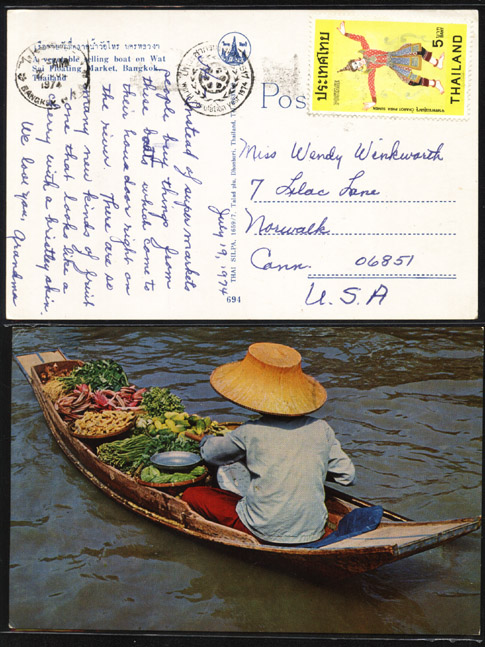 เรือขายผักที่ตลาดน้ำวัดไทร พระนครฯ
A vegetable selling boat on Wat
Sai Floating Market, Bangkok,
Thailand
1974
BANGKOK
Post
ประเทศไทย
5
THAILAND
July 19, 1974
Instead of super markets
people buy things from
these boats which come to
the house door right on
the river. There are so
many new kinds of fruit
one that looks like a
cherry with a bristley skin.
We love you, Grandma
THAI SILPA, 1609/7, Talad plu, Dhonburi, Thailand.
694
Miss Wendy Wenkworth
7 Lilac Lane
Norwalk
Conn. 06851
U.S.A